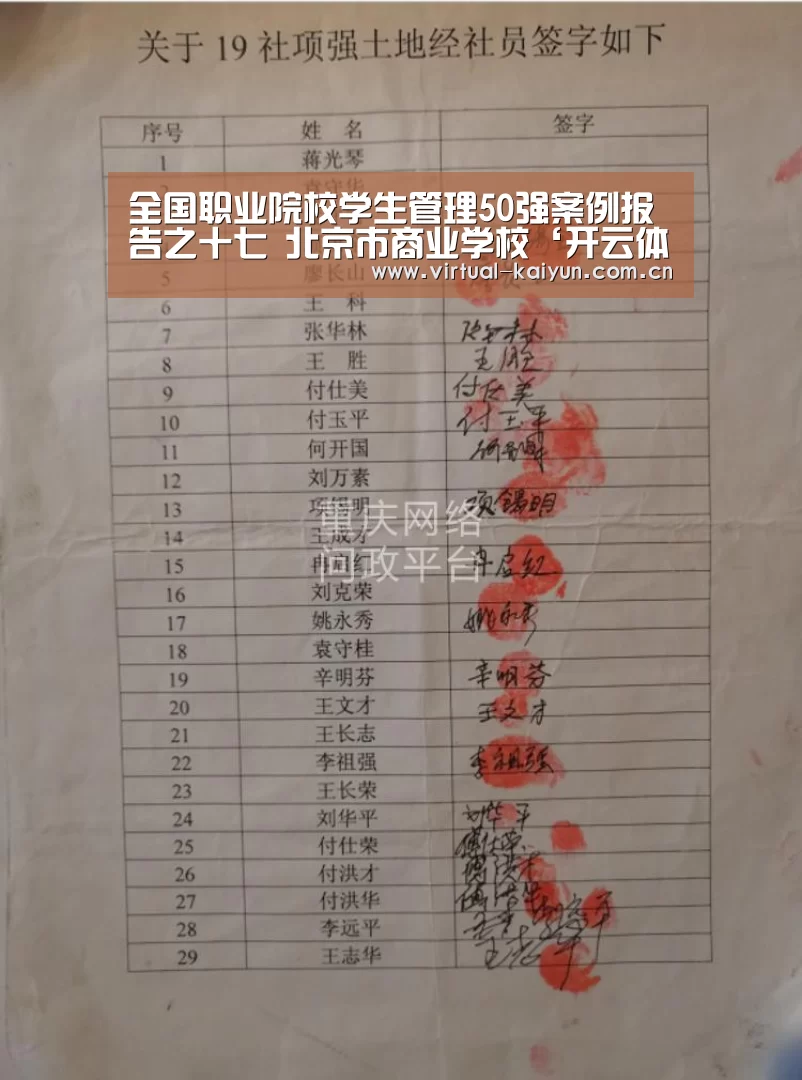 关于19社项强土地经社员签字如下
序号 姓 名 签字
1 蒋光琴
全国职业院校学生管理50强案例报
告之十七 北京市商业学校‘开云体
www.virtual-kaiyun.com.cn
5 廖长山
6 王 科
7 张华林
8 王 胜 王胜
9 付仕美 付仕美
10 付玉平 付玉平
11 何开国 何开国
12 刘万素
13 项锡明 项锡明
重庆网络
14 王成才
15 冉启红 冉启红
问政平台
16 刘克荣
17 姚永秀 姚永秀
18 袁守桂
19 辛明芬 辛明芬
20 王文才 王文才
21 王长志
22 李祖强 李祖强
23 王长荣
24 刘华平 刘华平
25 付仕荣 傅仕荣
26 付洪才 傅洪才
27 付洪华 傅洪华
28 李远平
29 王志华